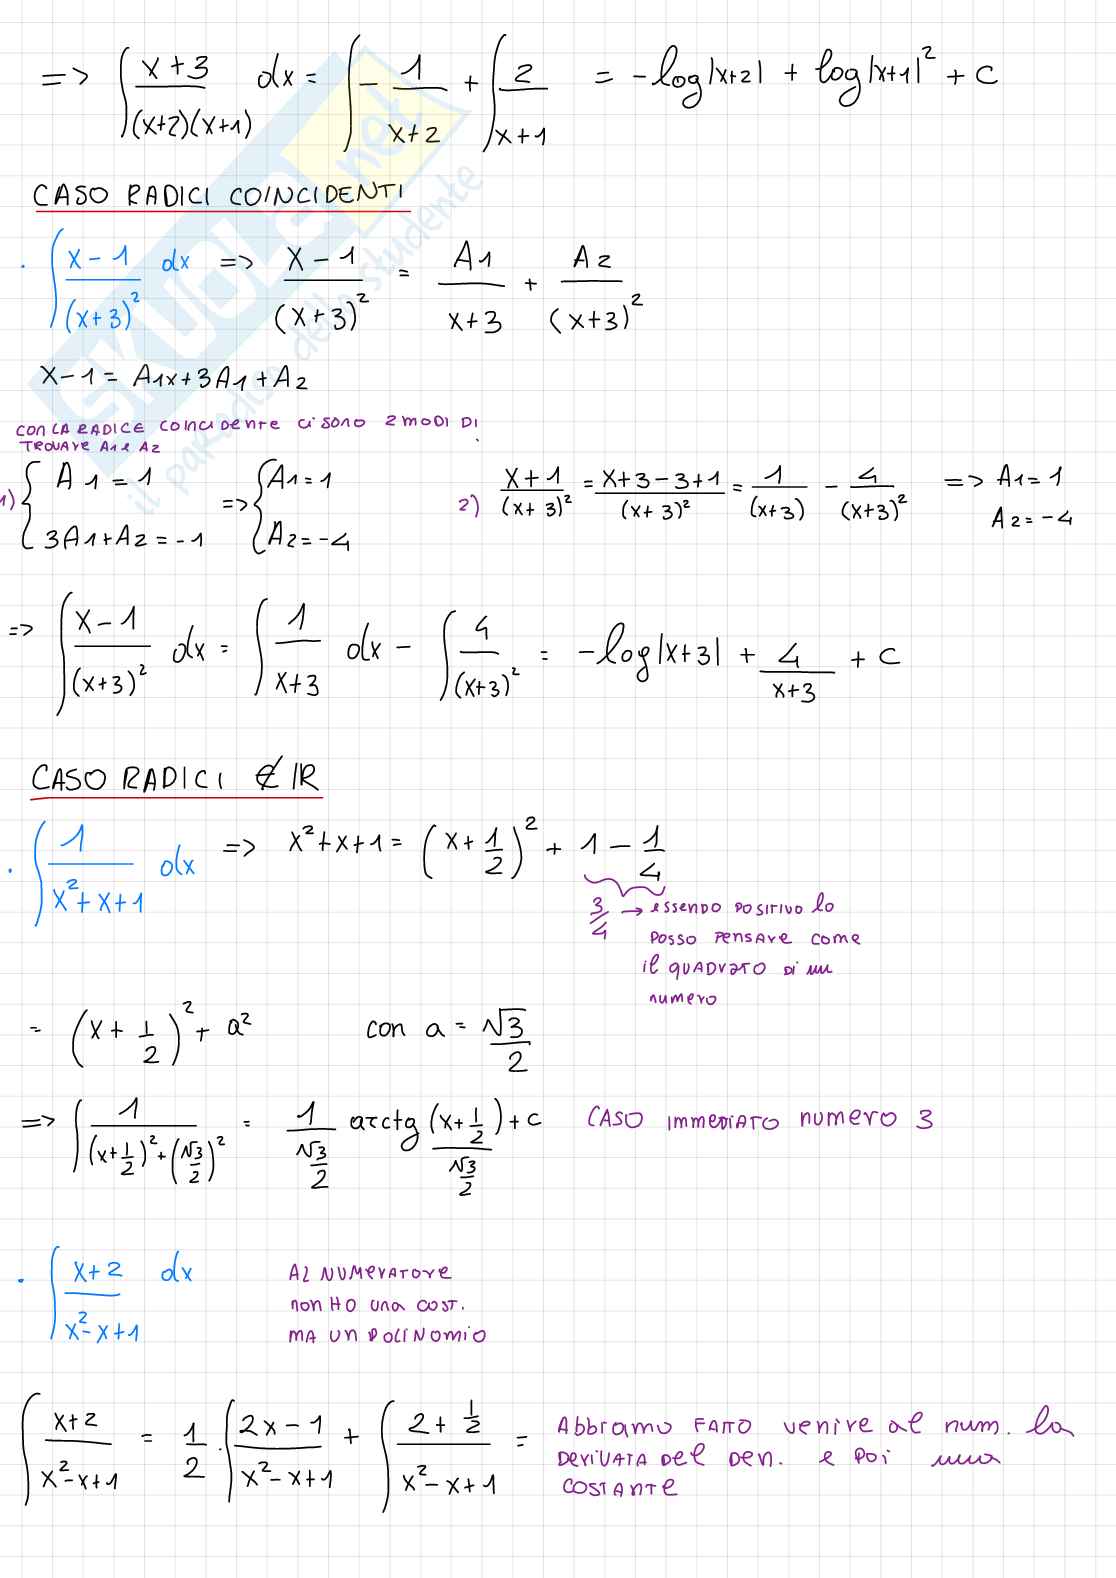 => ∫ (x+3)/((x+2)(x+1)) dx = ∫ - 1/(x+2) + ∫ 2/(x+1) = -log|x+2| + log|x+1|² + c
CASO RADICI COINCIDENTI
. ∫ (x-1)/(x+3)² dx => (x-1)/(x+3)² = A1/(x+3) + A2/(x+3)²
x-1 = A1x+3A1+A2
CON LA RADICE COINCIDENTE CI SONO 2 MODI DI
TROVARE A1 E A2
1) { A1 = 1 => { A1 = 1
3A1+A2 = -1 A2 = -4
2) (x+1)/(x+3)² = (x+3-3+1)/(x+3)² = 1/(x+3) - 4/(x+3)² => A1 = 1
A2 = -4
=> ∫ (x-1)/(x+3)² dx = ∫ 1/(x+3) dx - ∫ 4/(x+3)² = -log|x+3| + 4/(x+3) + c
CASO RADICI ∉ IR
. ∫ 1/(x²+x+1) dx => x²+x+1 = (x+1/2)² + 1 - 1/4
3/4 → ESSENDO POSITIVO lo
POSSO PENSARE COME
il QUADRATO DI un
numero
= (x+1/2)² + a² con a = √3/2
=> ∫ 1/((x+1/2)²+(√3/2)²) = 1/(√3/2) arctg (x+1/2)/(√3/2) + c CASO IMMEDIATO numero 3
. ∫ (x+2)/(x²-x+1) dx AL NUMERATORE
non HO una COST.
MA UN POLINOMIO
∫ (x+2)/(x²-x+1) = 1/2 · ∫ (2x-1)/(x²-x+1) + ∫ (2+1/2)/(x²-x+1) = Abbiamo FATTO venire al num. la
DERIVATA DEL DEN. e POI una
COSTANTE
SKUOLA.net
il paradiso dello studente